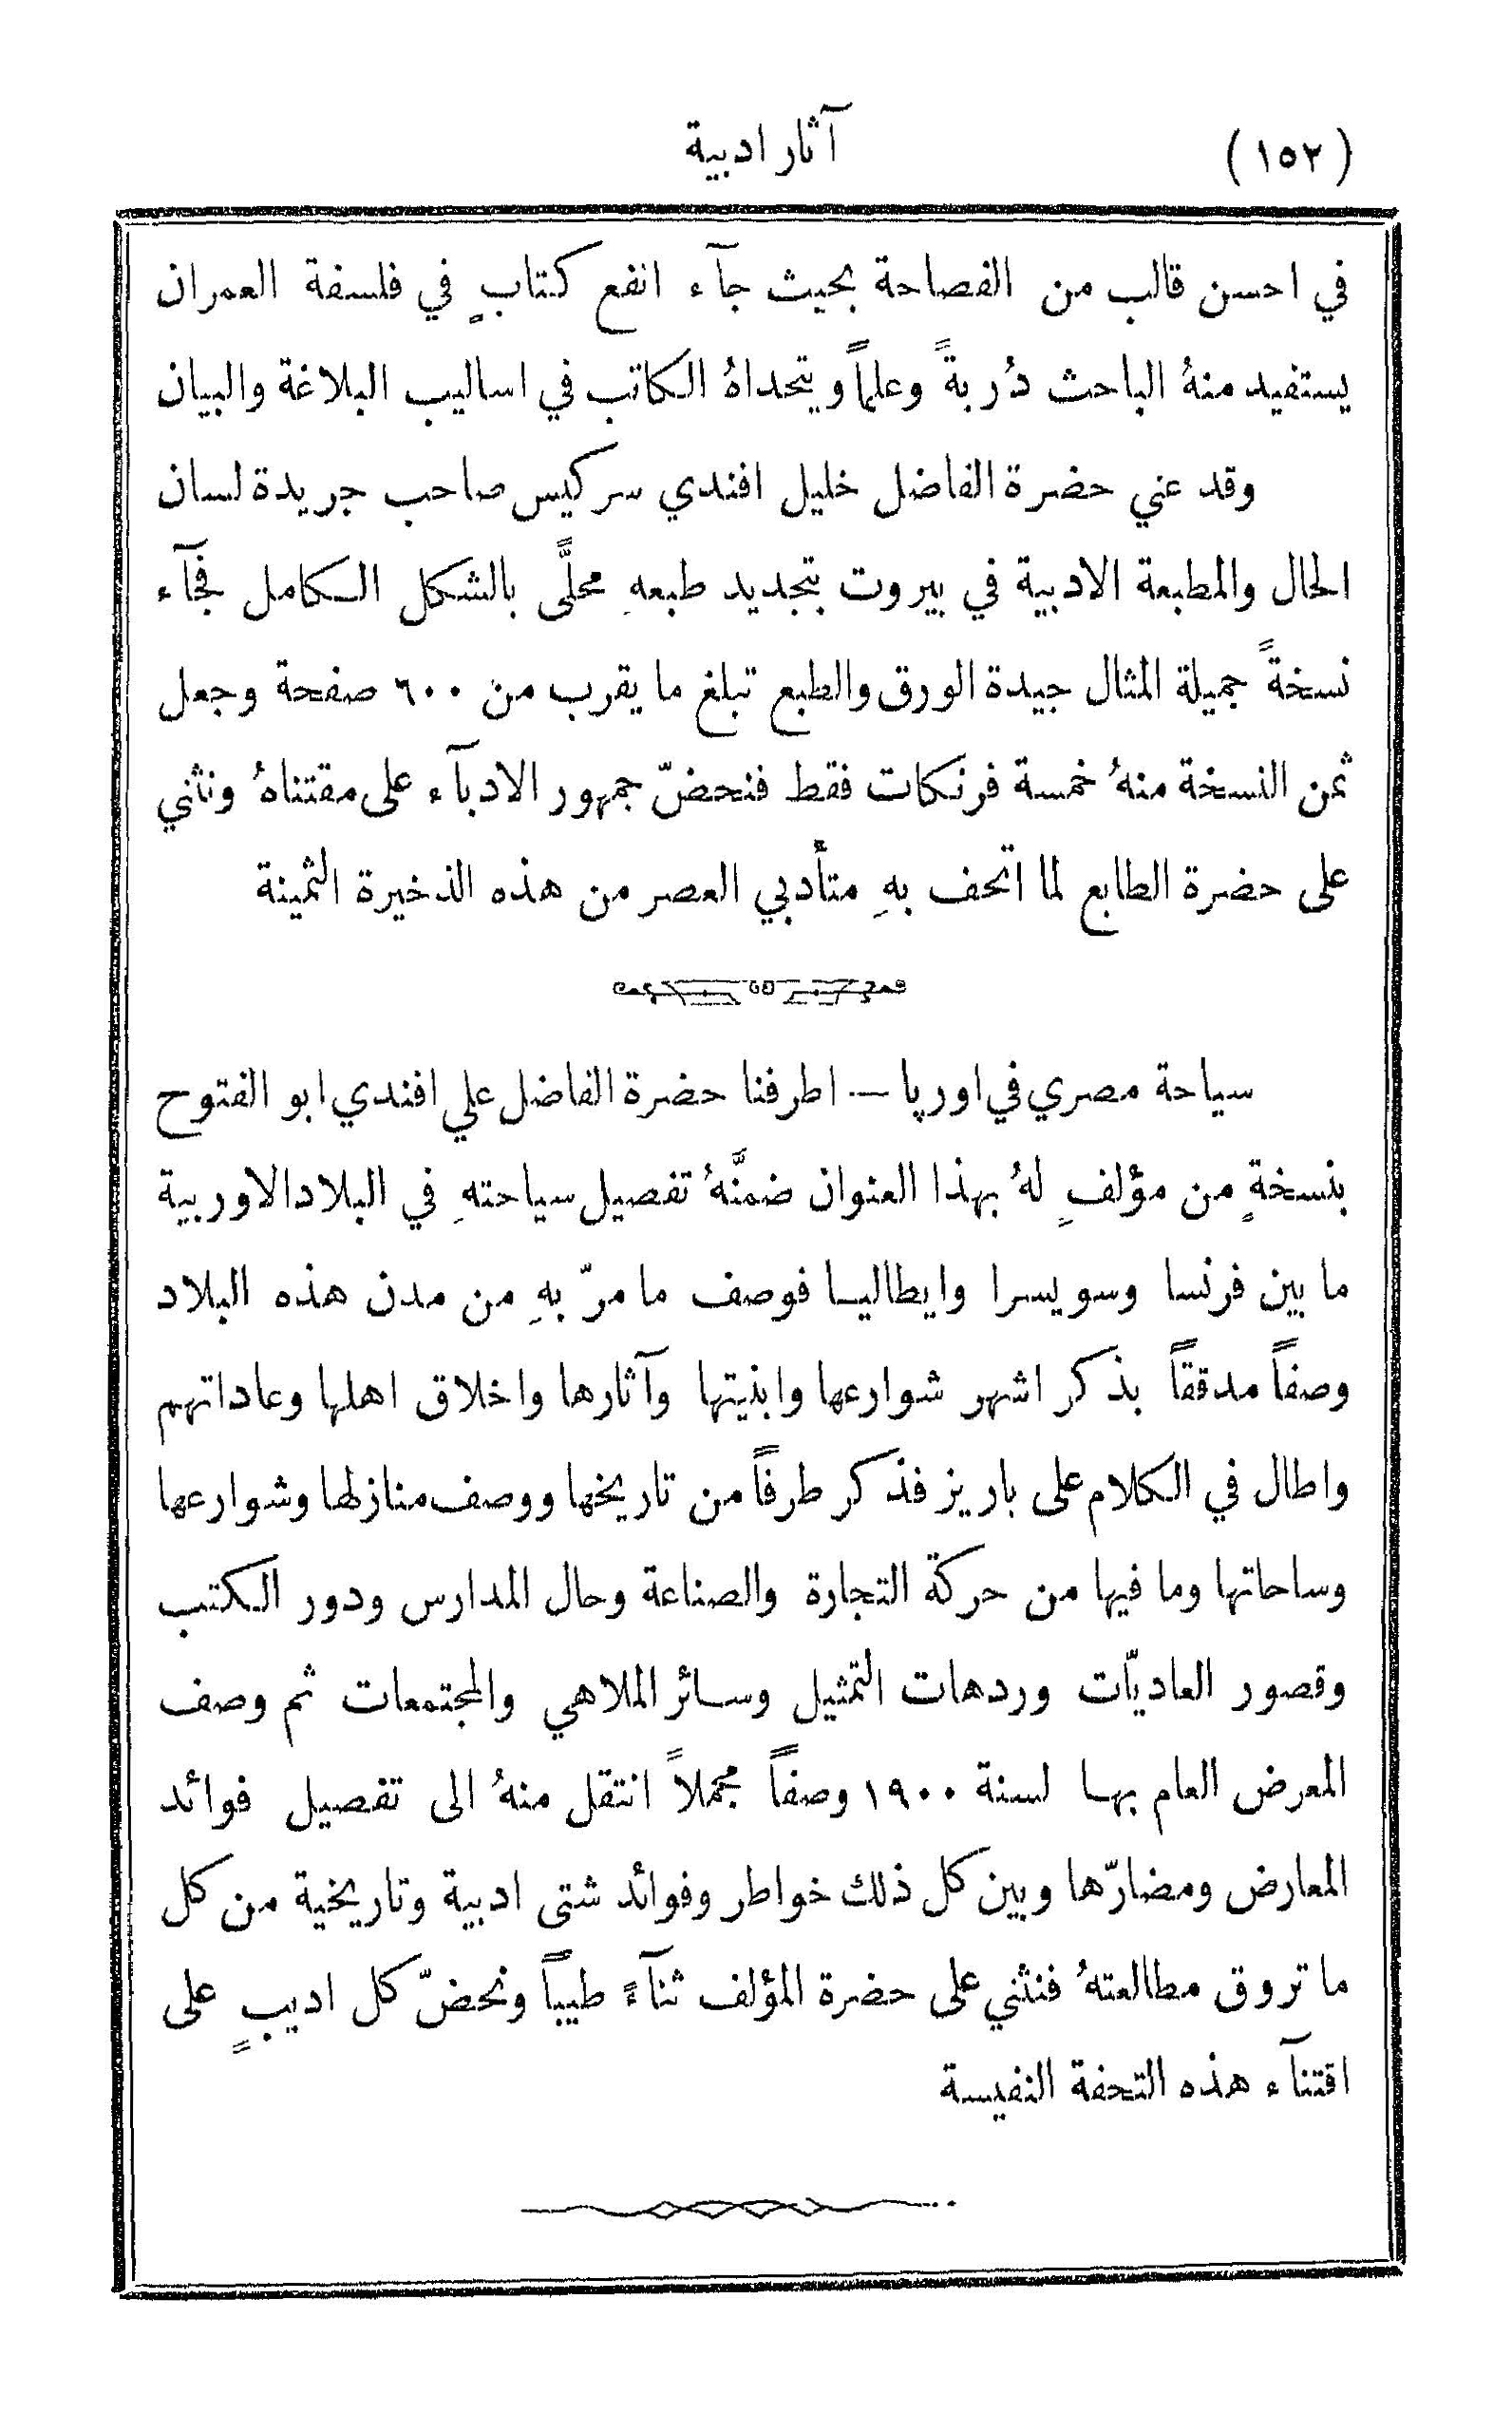 (١٥٢) آثار ادبية
في احسن قالب من الفصاحة بحيث جآء انفع كتابٍ في فلسفة العمران
يستفيد منهُ الباحث دُربةً وعلماً ويتحداهُ الكاتب في اساليب البلاغة والبيان
وقد عني حضرة الفاضل خليل افندي سركيس صاحب جريدة لسان
الحال والمطبعة الادبية في بيروت بتجديد طبعهِ محلَّى بالشكل الكامل فجآء
نسخةً جميلة المثال جيدة الورق والطبع تبلغ ما يقرب من ٦٠٠ صفحة وجعل
ثمن النسخة منهُ خمسة فرنكات فقط فنحضّ جمهور الادبآء على مقتناهُ ونثني
على حضرة الطابع لما اتحف بهِ متأدبي العصر من هذه الذخيرة الثمينة
سياحة مصري في اورپا — اطرفنا حضرة الفاضل علي افندي ابو الفتوح
بنسخةٍ من مؤلفٍ لهُ بهذا العنوان ضمنَّهُ تفصيل سياحتهِ في البلاد الاوربية
ما بين فرنسا وسويسرا وايطاليا فوصف ما مرّ بهِ من مدن هذه البلاد
وصفاً مدققاً بذكر اشهر شوارعها وابنيتها وآثارها واخلاق اهلها وعاداتهم
واطال في الكلام على باريز فذكر طرفاً من تاريخها ووصف منازلها وشوارعها
وساحاتها وما فيها من حركة التجارة والصناعة وحال المدارس ودور الكتب
وقصور العاديّات وردهات التمثيل وسائر الملاهي والمجتمعات ثم وصف
المعرض العام بها لسنة ١٩٠٠ وصفاً مجملاً انتقل منهُ الى تفصيل فوائد
المعارض ومضارّها وبين كل ذلك خواطر وفوائد شتى ادبية وتاريخية من كل
ما تروق مطالعتهُ فنثني على حضرة المؤلف ثنآءً طيباً ونحضّ كل اديبٍ على
اقتنآء هذه التحفة النفيسة